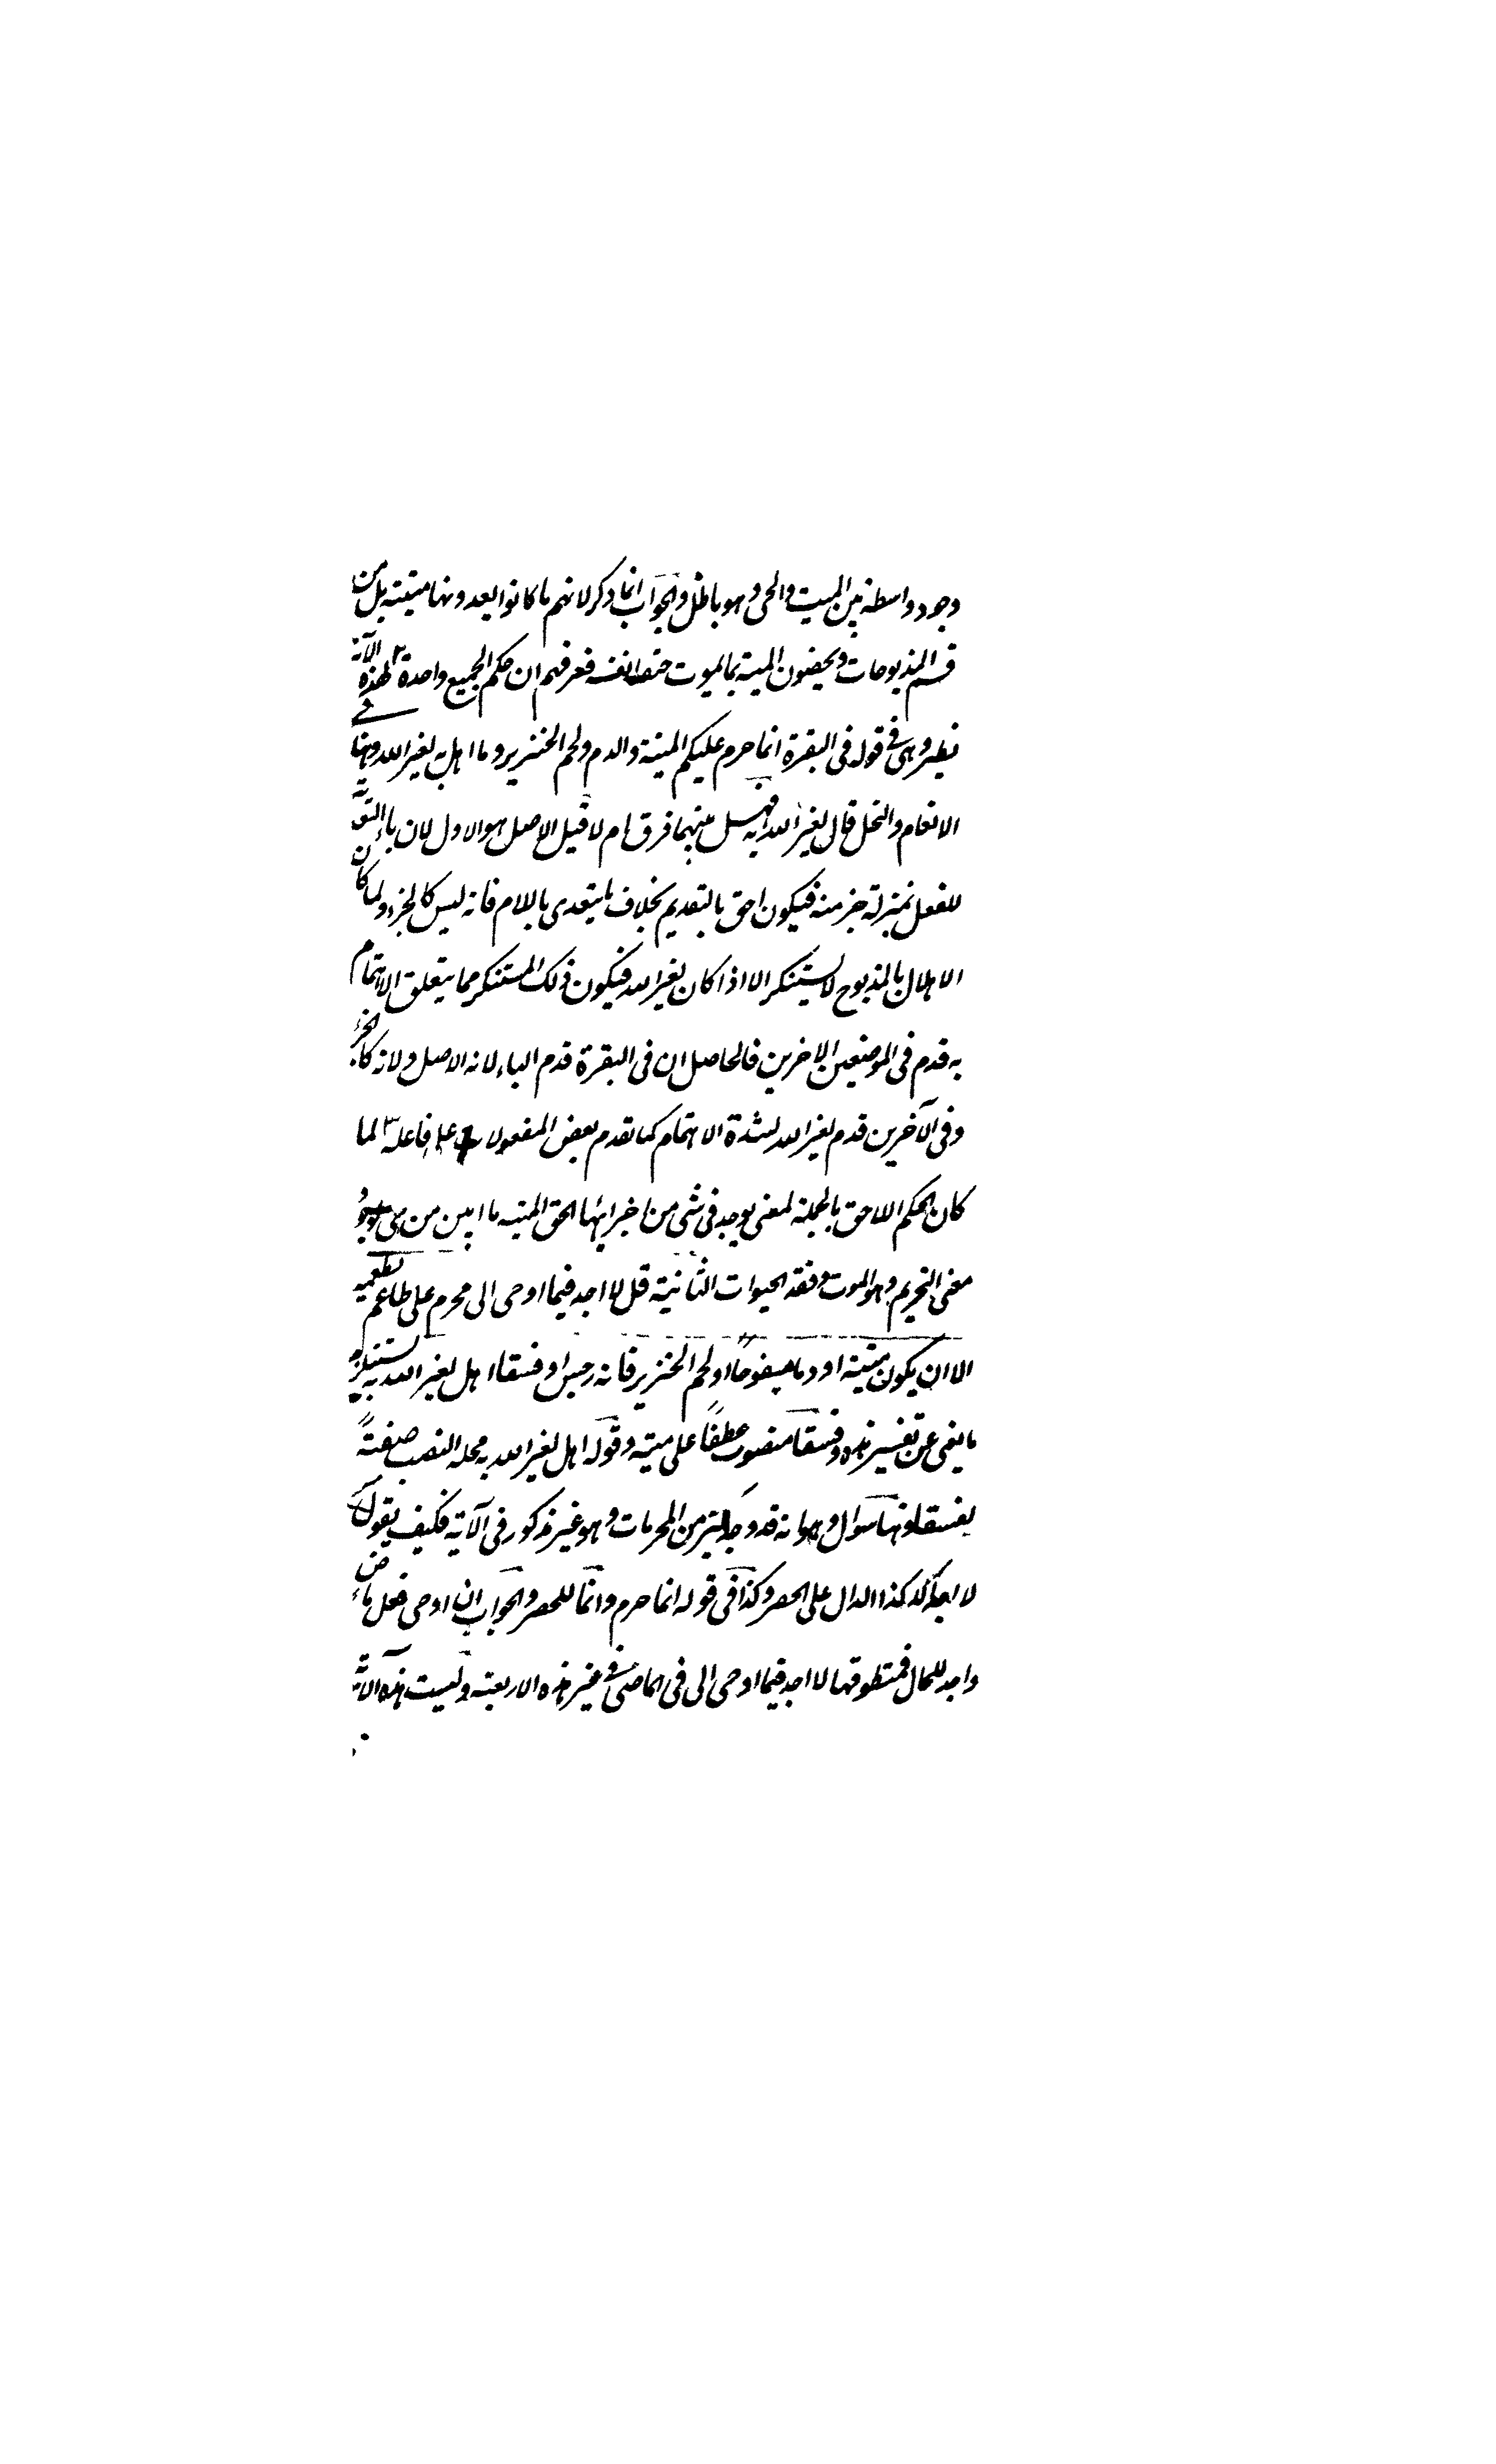 وجود واسطة بين الميت والحى وهو باطل والجواب انما ذكر لانهم ما كانوا يعدونها ميتة بل من
قسم المذبوحات ويخصون الميتة بما يموت حتف انفه فعرفهم ان حكم الجميع واحدة لهذه الآية
نظير وهى فى قوله فى البقرة انما حرم عليكم الميتة والدم ولحم الخنزير وما اهل به لغير الله وههنا فى
الانعام والنحل قال لغير الله به فهل بينهما فرق ام لا قيل الاصل هو الاول لان باء التعدية
للفعل بمنزلة جزء منه فيكون احق بالتقديم بخلاف ما يتعدى باللام فانه ليس كالجزء ولما كان
الاهلال بالمذبوح لا يستنكر الا اذا كان لغير الله فيكون ذلك المستنكر مما يتعلق الاهتمام
به قدم فى الموضعين الاخرين فالحاصل ان فى البقرة قدم الباء لانه الاصل ولانه كالجزء
وفى الآخرين قدم لغير الله لشدة الاهتمام كما تقدم بعض المفعولات على فاعله لما
كان الحكم اللاحق بالجملة لمعنى يوجد فى شى من اجزائها الحق الميتة ما ابين من حى لوجود
معنى التحريم وهو الموت وفقد الحيوات الثانية قل لا اجد فيما اوحى الى محرم على طاعم يطعمه
الا ان يكون ميتة او دما مسفوحًا او لحم الخنزير فانه رجس او فسقا اهل لغير الله به
ما يغنى عن تفسير هذه وفسقا منصوب عطفًا على ميتة وقوله اهل لغير الله به محله النصب صفةً
لفسقا وفيها سوال وهو انه قد وجد كثير من المحرمات وهو غير مذكور فى الآية فكيف يقول
كذا الدال على الحصر وكذا فى قوله انما حرم وانما للحصر والجواب ان اوحى فعل ماض
واجد للحال فمنطوقها لا اجد فيما اوحى الى فى الماضى غير هذه الاربعة وليست هذه الآية